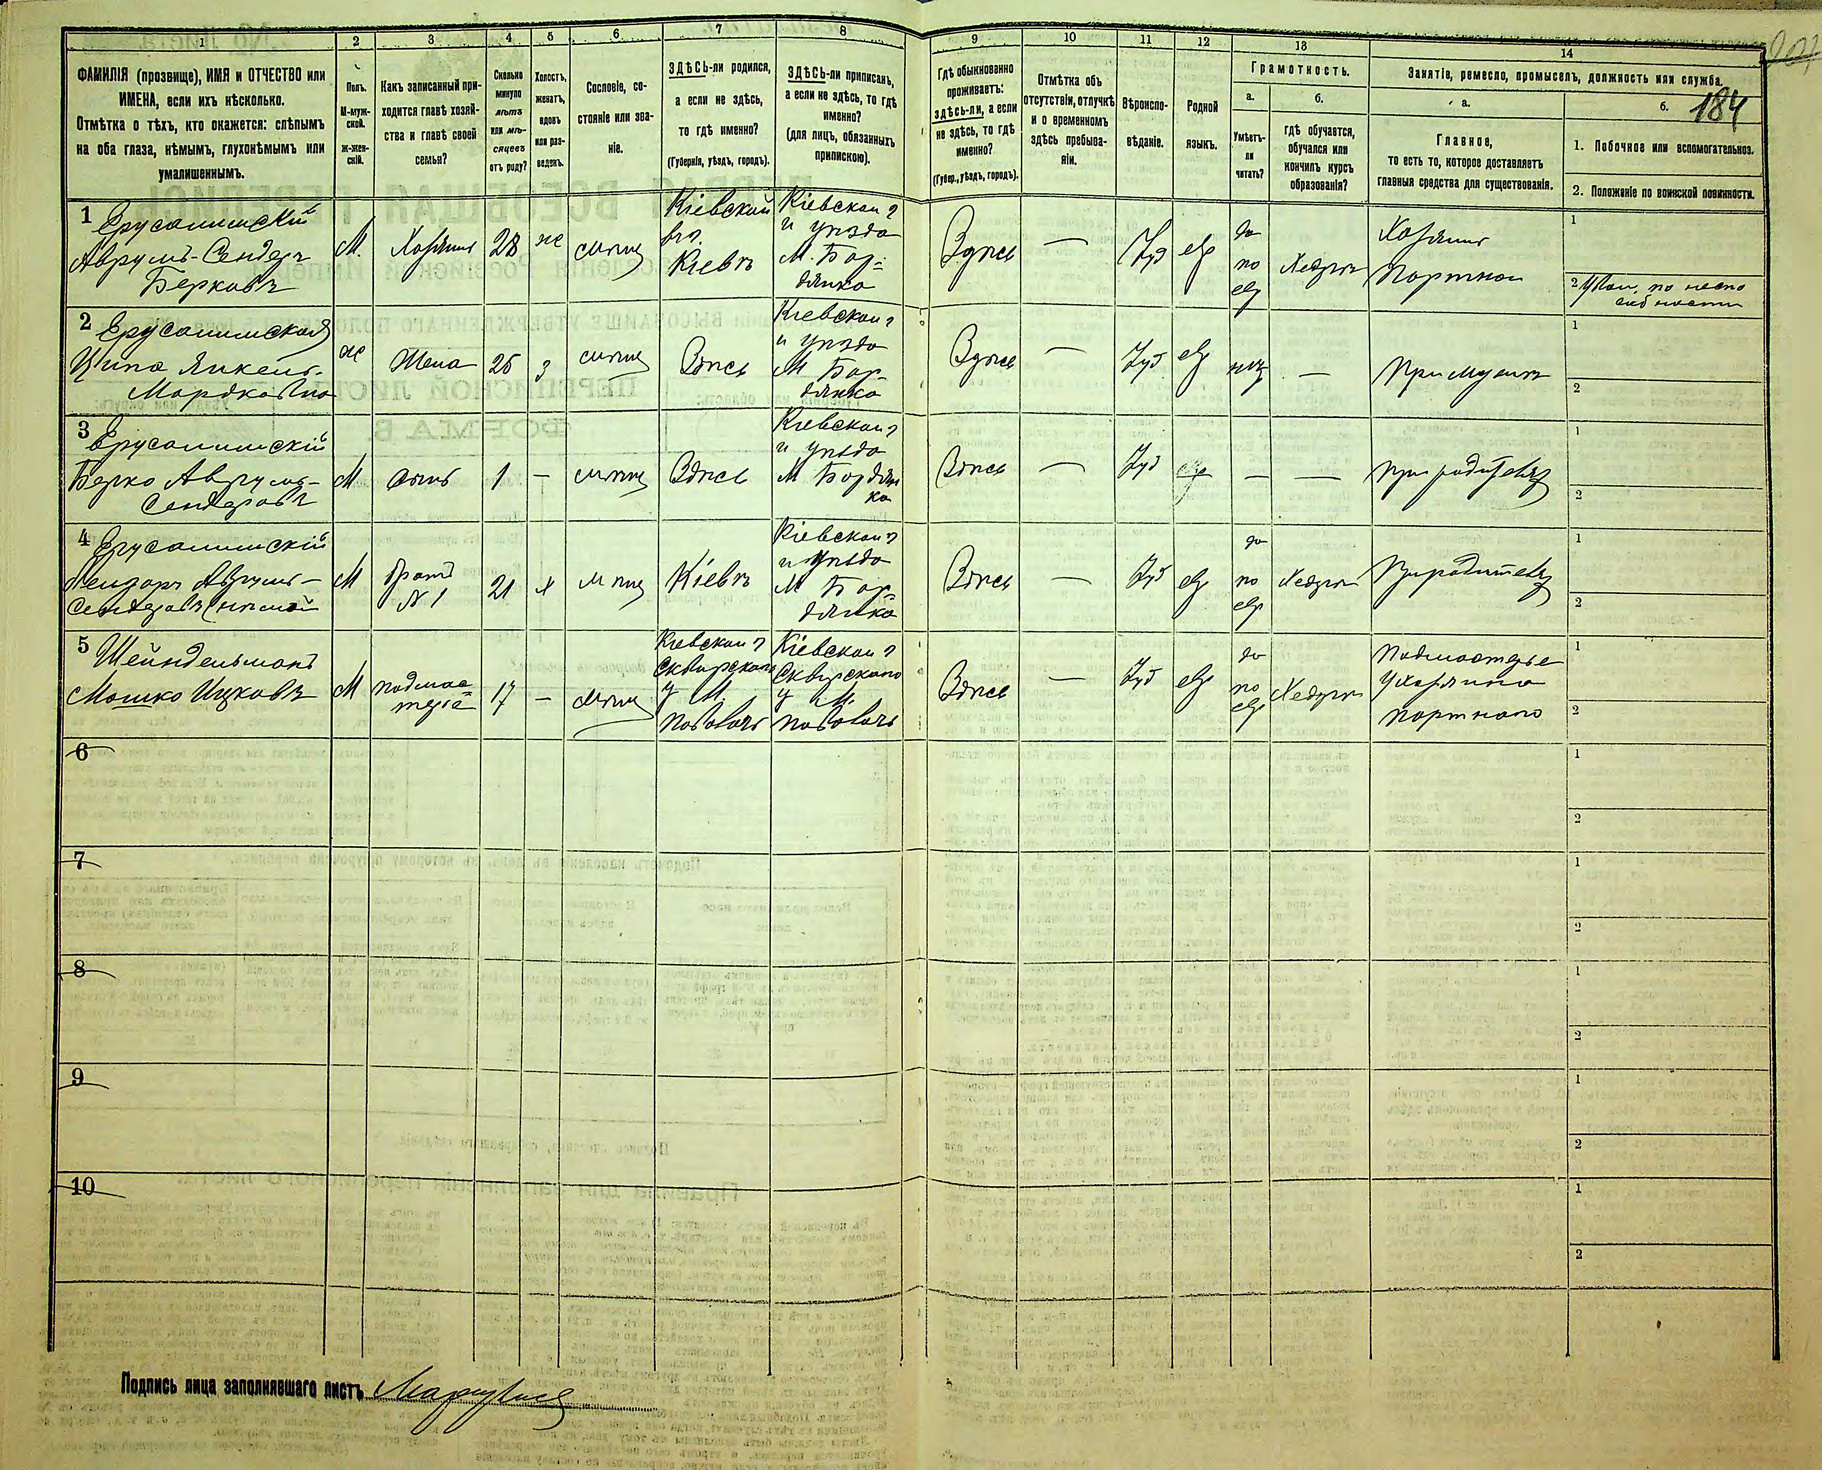 1
2
3
4
5
6
7
8
9
10
11
12
13
14
184
ФАМИЛІЯ (прозвище), ИМЯ и ОТЧЕСТВО или
ИМЕНА, если ихъ нѣсколько.
Отмѣтка о тѣхъ, кто окажется: слѣпымъ
на оба глаза, нѣмымъ, глухонѣмымъ или
умалишеннымъ.
Полъ.
М-муж-
ской.
Ж-жен-
скій.
Какъ записанный при-
ходится главѣ хозяй-
ства и главѣ своей
семьи?
Сколько
минуло
лѣтъ
или мѣ-
сяцевъ
отъ роду?
Холостъ,
женатъ,
вдовъ
или раз-
веденъ.
Сословіе, со-
стояніе или зва-
ніе.
ЗДѢСЬ-ли родился,
а если не здѣсь,
то гдѣ именно?
(Губернія, уѣздъ, городъ).
ЗДѢСЬ-ли приписанъ,
а если не здѣсь, то гдѣ
именно?
(для лицъ, обязанныхъ
припискою).
Гдѣ обыкновенно
проживаетъ:
здѣсь-ли, а если
не здѣсь, то гдѣ
именно?
(Губер., уѣздъ, городъ).
Отмѣтка объ
отсутствіи, отлучкѣ
и о временномъ
здѣсь пребыва-
ніи.
Вѣроиспо-
вѣданіе.
Родной
языкъ.
Грамотность.
а.
Умѣетъ-
ли
читать?
б.
гдѣ обучается,
обучался или
кончилъ курсъ
образованія?
Занятіе, ремесло, промыселъ, должность или служба.
а.
Главное,
то есть то, которое доставляетъ
главныя средства для существованія.
б.
1. Побочное или вспомогательное.
2. Положеніе по воинской повинности.
1
Ерусалимскій
Аврумъ-Сендеръ
Берковъ
М.
Хозяинъ
28
же
мѣщ
Кіевской
губ.
Кіевъ
Кіевской г
и уѣзда
М. Бор-
дянка
Здѣсь
—
Іуд
евр
да
по
евр
Хедеръ
Хозяинъ
Портной
1
2
2 Ерусалимская
Ципа Янкель-
Мордковна
ж
Жена
25
з
мѣщ
Здѣсь
Кіевской г
и уѣзда
М Бор-
дянка
Здѣсь
—
Іуд
евр
нѣт
—
При мужѣ
1
2
3
Ерусалимскій
Берко Аврумъ-
Сендеровъ
М
сынъ
1
—
мѣщ
Здѣсь
Кіевской г
и уѣзда
М Бордян
ка
Здѣсь
—
Іуд
евр
—
—
При родителяхъ
1
2
4
Ерусалимскій
Аврумъ-
Сендеровъ
М
братъ
№ 1
21
х
мѣщ
Кіевъ
Кіевской г
и уѣзда
М Бор-
дянка
Здѣсь
—
Іуд
евр
да
по
евр
Хедеръ
При родителяхъ
1
2
5
Шейндельманъ
Мошко Ицковъ
М
подмас-
терье
17
—
мѣщ
Кіевской г
Сквирскаго
у М.
Паволочь
Кіевской г
Сквирскаго
у М.
Паволочь
Здѣсь
—
Іуд
евр
да
по
евр
Хедеръ
Подмастерье
у хозяина
портного
1
2
6
1
2
7
1
2
8
1
2
9
1
2
10
1
2
Подпись лица заполнявшаго листъ